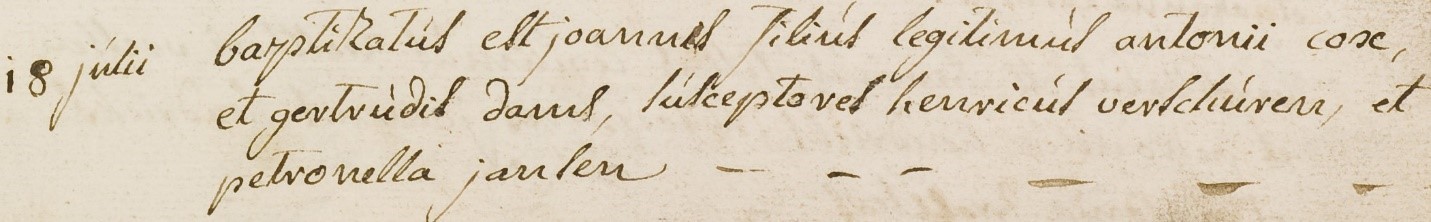 18 júlii baptizatús est joannes filiús legitimús antonii cox,
et gertrúdis dams, súsceptores henricús verschúren, et
petronella jansen — – – — — –